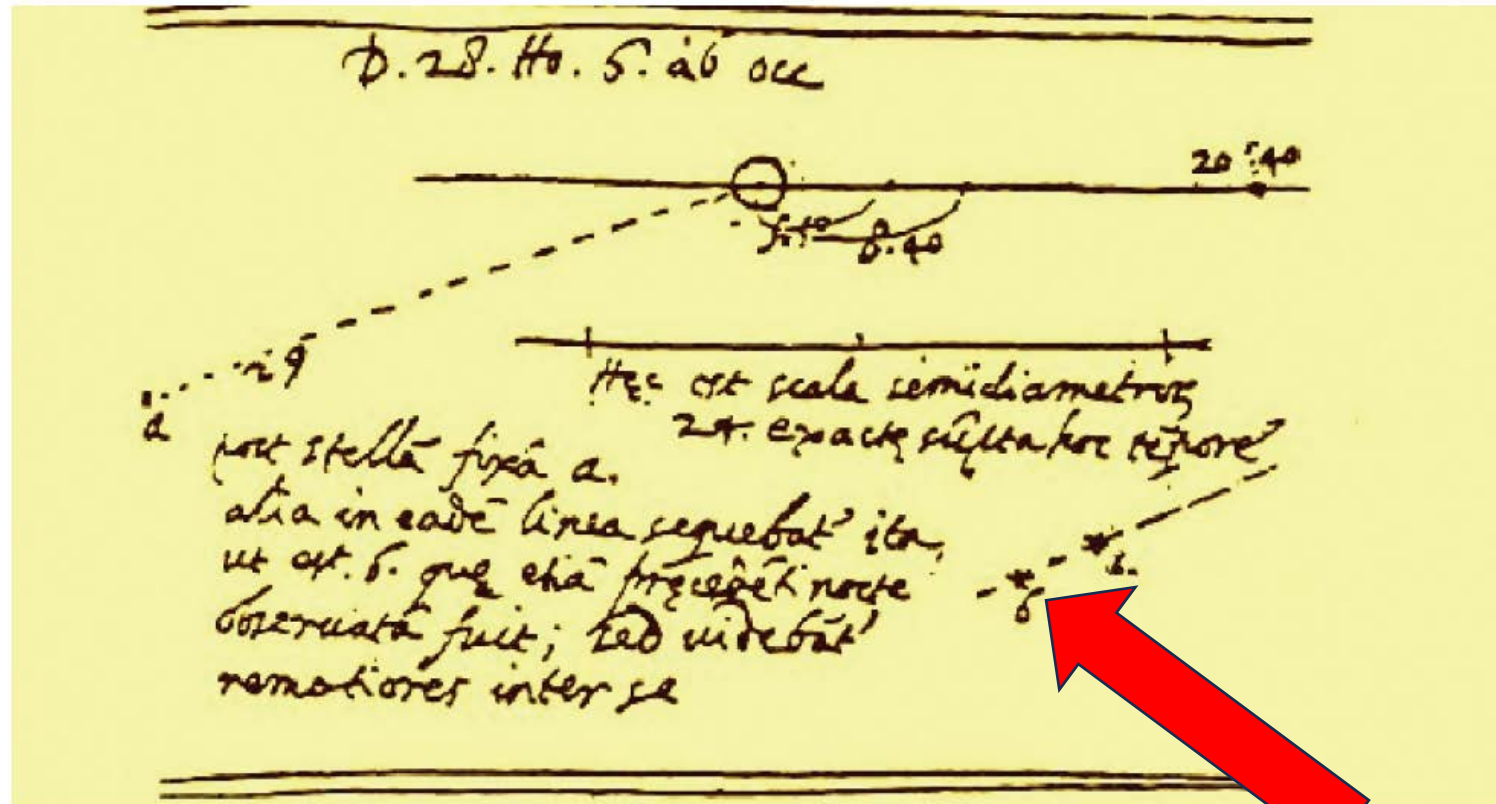 D. 28. Ho. 6. ab occ
20.40
8.40
29
a
Hęc est scala semidiametroꝝ
24. exactę sūpta hoc tēpore
post stellā fixā a.
alia in eadē linea sequebat' ita,
ut est. b. quę etiā pręcedēti nocte
obseruata fuit; sed uidebāt'
remotiores inter se
b